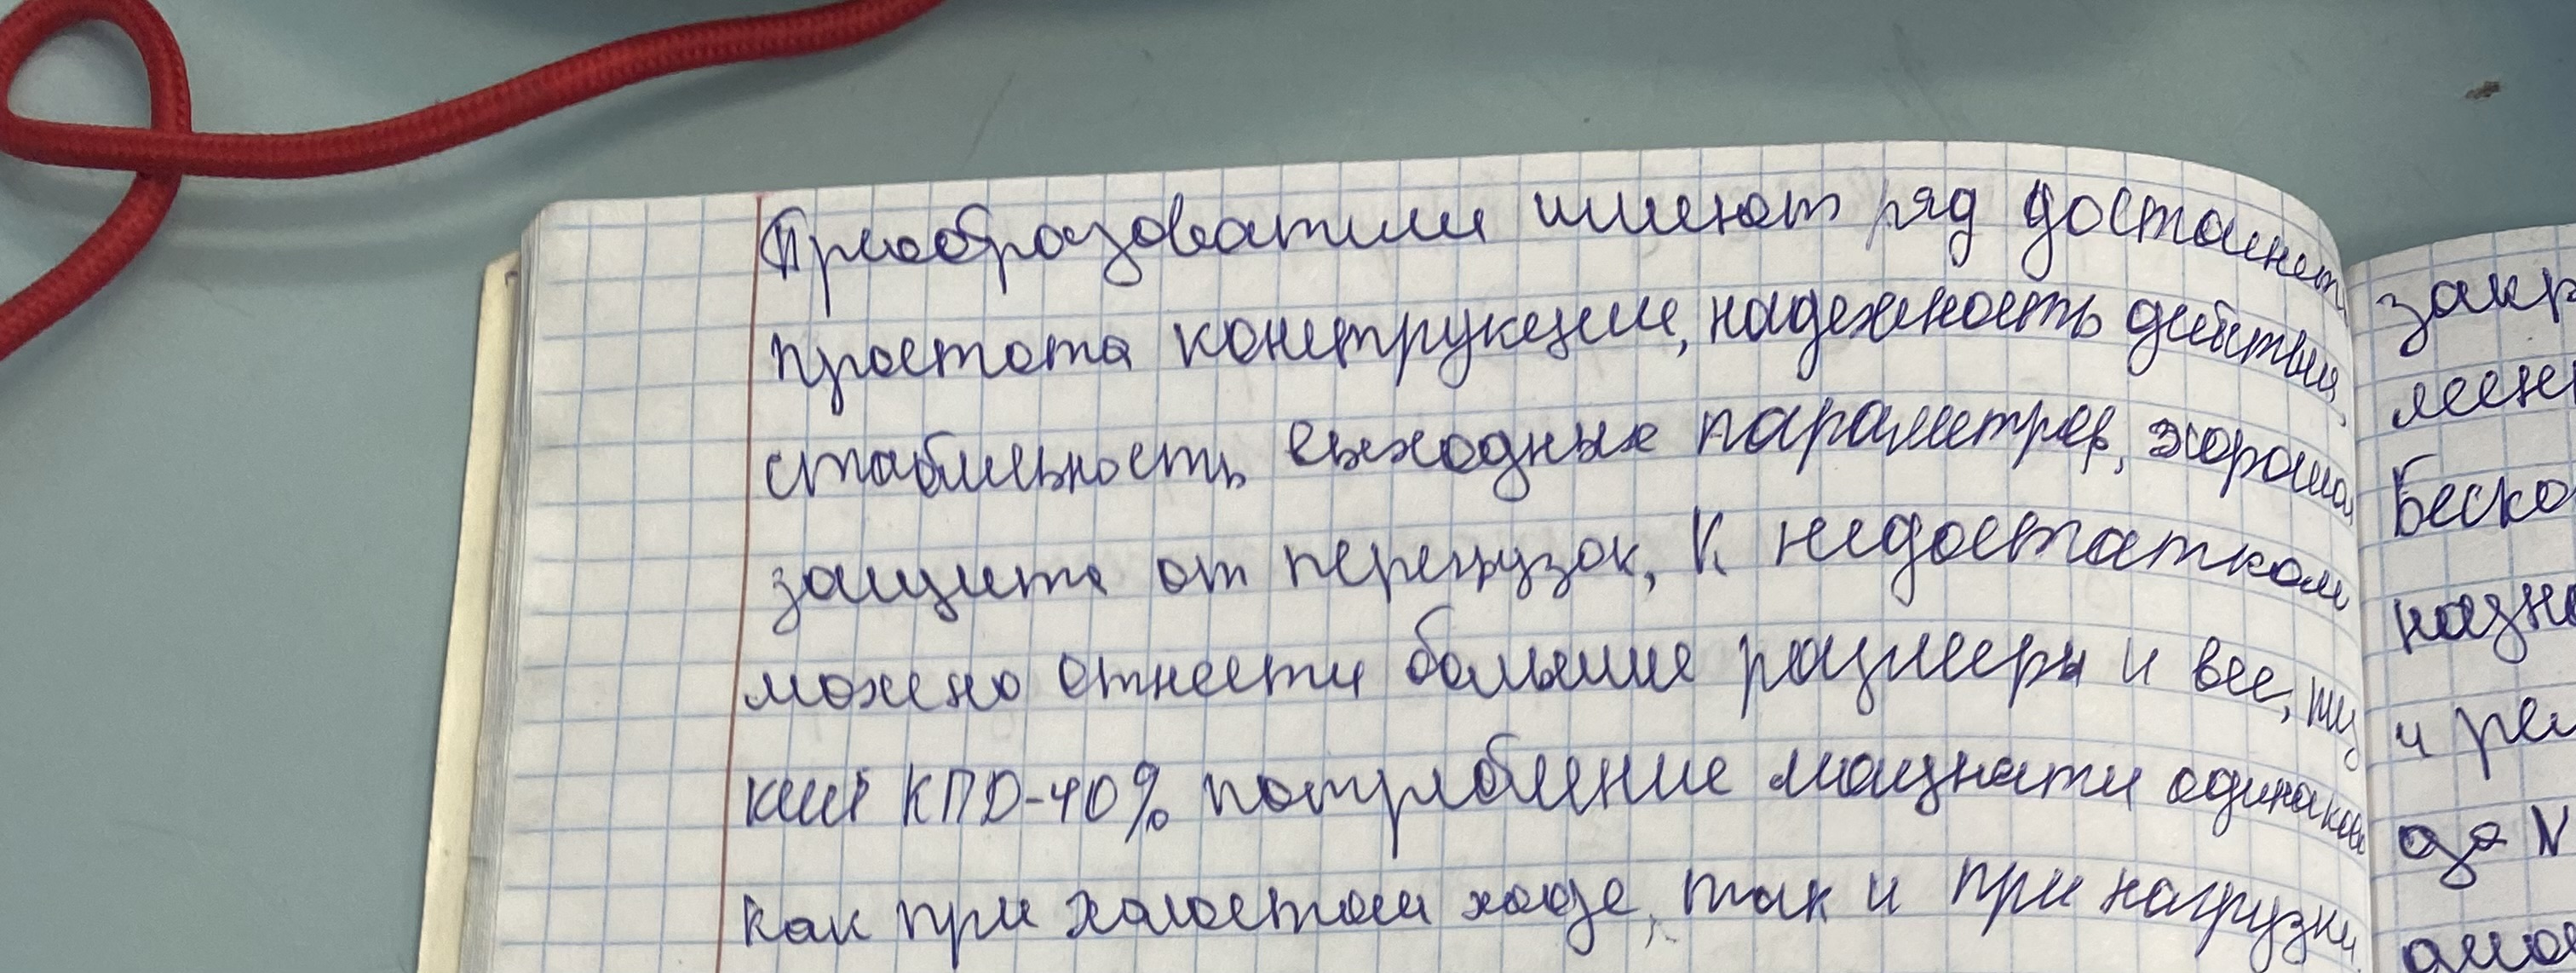 Преобразователи имеют ряд достоинст
простота конструкции, надежность действия,
стабильность выходных параметров, хорошая
защита от перегрузок, К недостаткам
можно отнести большие размеры и вес, низ
кий КПД-40% потребление мощности одинаково
как при холостом ходе, так и при нагрузки
закр
лен
Беско
назна
и рем
да N